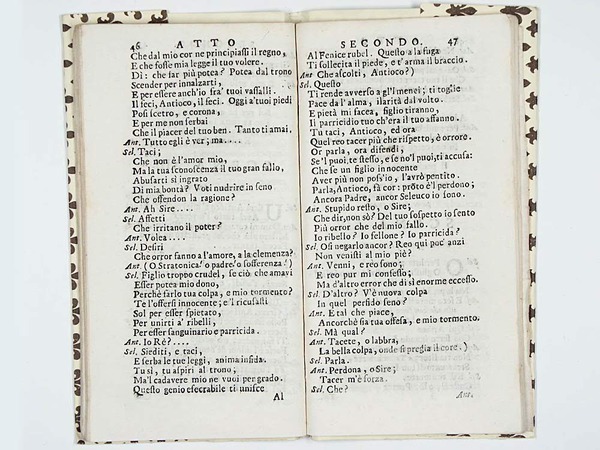 46 ATTO
Che dal mio cor ne principiassi il regno,
E che fosse mia legge il tuo volere.
Di: che far più potea? Potea dal trono
Scender per innalzarti,
E per essere anch'io fra' tuoi vassalli.
Il feci, Antioco, il feci. Oggi a'tuoi piedi
Posi scetro, e corona,
E per me non serbai
Che il piacer del tuo ben. Tanto ti amai.
Ant. Tutto egli è ver; ma....
Sel. Taci;
Che non è l'amor mio,
Ma la tua sconoscenza il tuo gran fallo,
Abusarti sì ingrato
Di mia bontà? Voti nudrire in seno
Che offendon la ragione?
Ant. Ah Sire....
Sel. Affetti
Che irritano il poter?
Ant. Volea....
Sel. Desiri
Che orror fanno a l'amore, a la clemenza?
Ant. (O Stratonica! o padre! o sofferenza!)
Sel. Figlio troppo crudel, se ciò che amavi
Esser potea mio dono,
Perchè farlo tua colpa, e mio tormento?
Te l'offersi innocente; e 'l ricusasti
Sol per esser spietato,
Per unirti a' ribelli,
Per esser sanguinario e parricida.
Ant. Io Rè?....
Sel. Siediti, e taci,
E serba le tue leggi, anima infida.
Tu sì, tu aspiri al trono;
Ma'l cadavere mio ne vuoi per grado.
Questo genio esecrabile ti unisce
Al
SECONDO. 47
Al Fenice rubel. Questo a la fuga
Ti sollecita il piede, e t'arma il braccio.
Ant (Che ascolti, Antioco?)
Sel. Questo
Ti rende avverso a gl'Imenei; ti toglie
Face da l'alma, ilarità dal volto.
E pietà mi facea, figlio tiranno,
Il parricidio tuo ch'era il tuo affanno.
Tu taci, Antioco, ed ora
Quel reo tacer più che rispetto, è orrore.
Or parla, ora difendi,
Se 'l puoi, te stesso, e se no'l puoi, ti accusa:
Che se un figlio innocente
Aver più non poss'io, l'avrò pentito.
Parla, Antioco, fà cor: prōto è'l perdono;
Ancora Padre, ancor Seleuco io sono.
Ant. Stupido resto, o Sire;
Che dir, non sò? Del tuo sospetto io sento
Più orror che del mio fallo.
Io ribello? Io fellone? Io parricida?
Sel. Osi negarlo ancor? Reo qui poc' anzi
Non venisti al mio piè?
Ant. Venni, e reo sono;
E reo pur mi confesso;
Ma d'altro error che di sì enorme eccesso.
Sel. D'altro? V'è nuova colpa
In quel perfido seno?
Ant. E tal che piace,
Ancorchè sia tua offesa, e mio tormento.
Sel. Mà qual?
Ant. Tacete, o labbra,
La bella colpa, onde si pregia il core.)
Sel. Parla.
Ant. Perdona, o Sire;
Tacer m'è forza.
Sel. Che?
Ant.